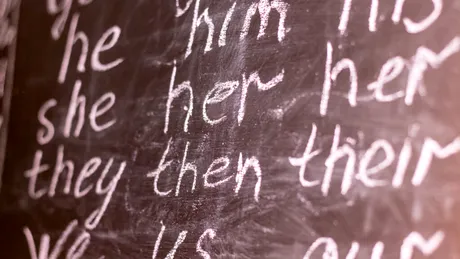 he him his
she her her
they then their
we us our